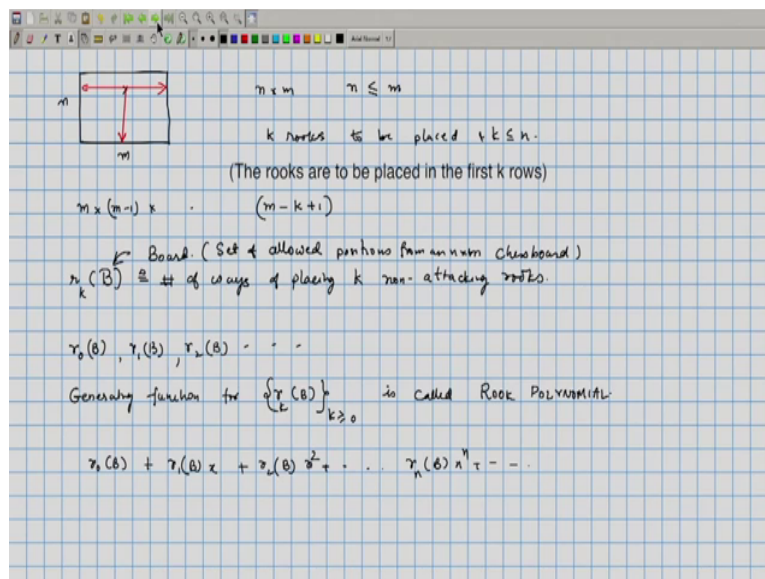 n × m n ≤ m
n
k rooks to be placed & k ≤ n.
m
(The rooks are to be placed in the first k rows)
m × (m-1) × . (m - k + 1)
Board. (Set of allowed positions from an nxm chessboard)
r_k (B) ≜ # of ways of placing k non-attacking rooks.
r_0(B), r_1(B), r_2(B) - - -
Generating function for {r_k (B)}_{k≥0} is called ROOK POLYNOMIAL.
r_0(B) + r_1(B) x + r_2(B) x^2 + . . . r_n(B) x^n + - - .